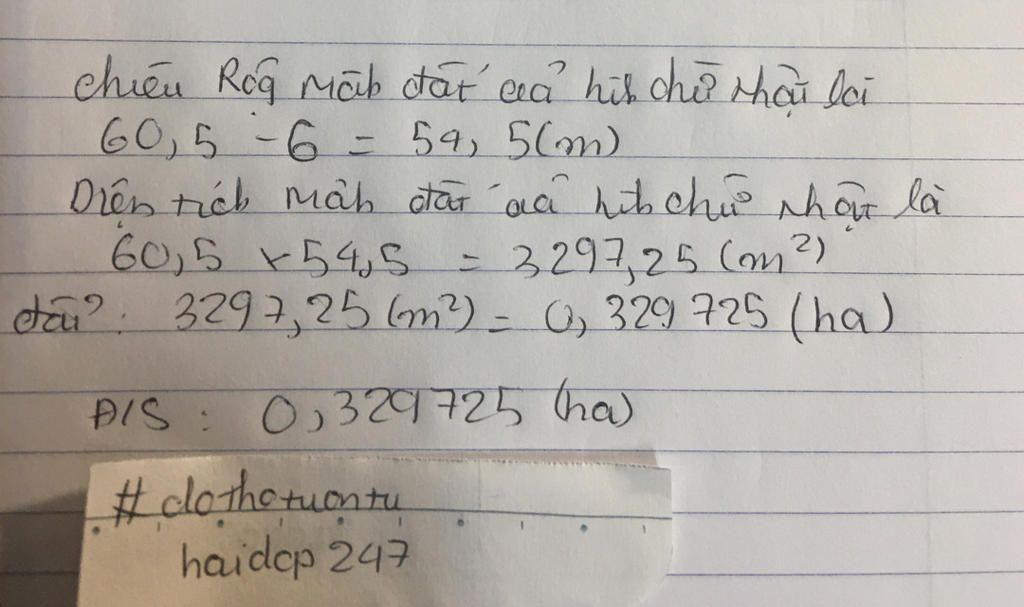 chiều Rộg mãh đất củả hìh chữ nhật lài
60,5 - 6 = 54,5(m)
Diện tích mảh đất củả hìh chữ nhật là
60,5 x 54,5 = 3297,25 (m²)
đổi: 3297,25 (m²) = 0,329725 (ha)
Đ/S: 0,329725 (ha)
#dothotuontu
haidcp 247